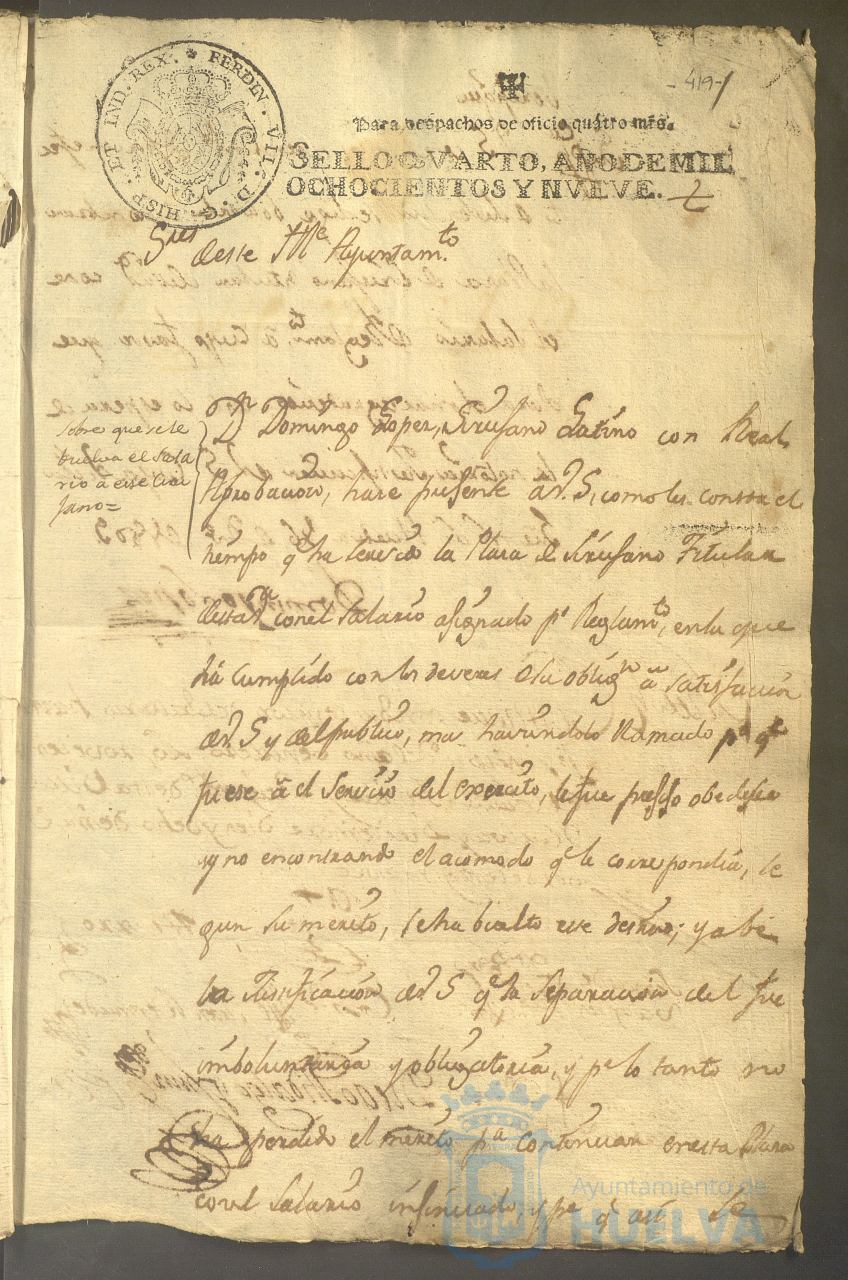 FERDIN. VII. D. G. HISP. ET IND. REX.
419-1
Para despachos de oficio quatro mrs.
SELLO QVARTO, AÑO DE MIL
OCHOCIENTOS Y NVEVE.
Sres deste Ylle Ayuntam.to
Sobre que se le
buelva el sala
rio á este Ciru
jano=
Dn Domingo Lopez, Sirujano Latino con Real
Aprobacion, hace presente a V. S, como les consta el
tiempo q.e ha serbido la Plaza de Sirujano Titular
con el Salario asignado pr Reglam.to, en la que
há cumplido con los deveres de su oblig.n a satisfaccion
de V. S y del publico, mas haviendolo llamado p.a q.e
fuese á el Servicio del exercito, le fue presiso obedeser
y no encontrando el acomodo q.e le correspondia, se
gun su merito, se ha buelto a este destino; y
la Justificacion de V. S q.e la Separacion del fue
imboluntaria y obligatoria, y pr lo tanto no
ha perdido el merito p.a continuar en esta Plaza
con el Salario insinuado, y p.a q.e asi Se
Ayuntamiento de
HUELVA